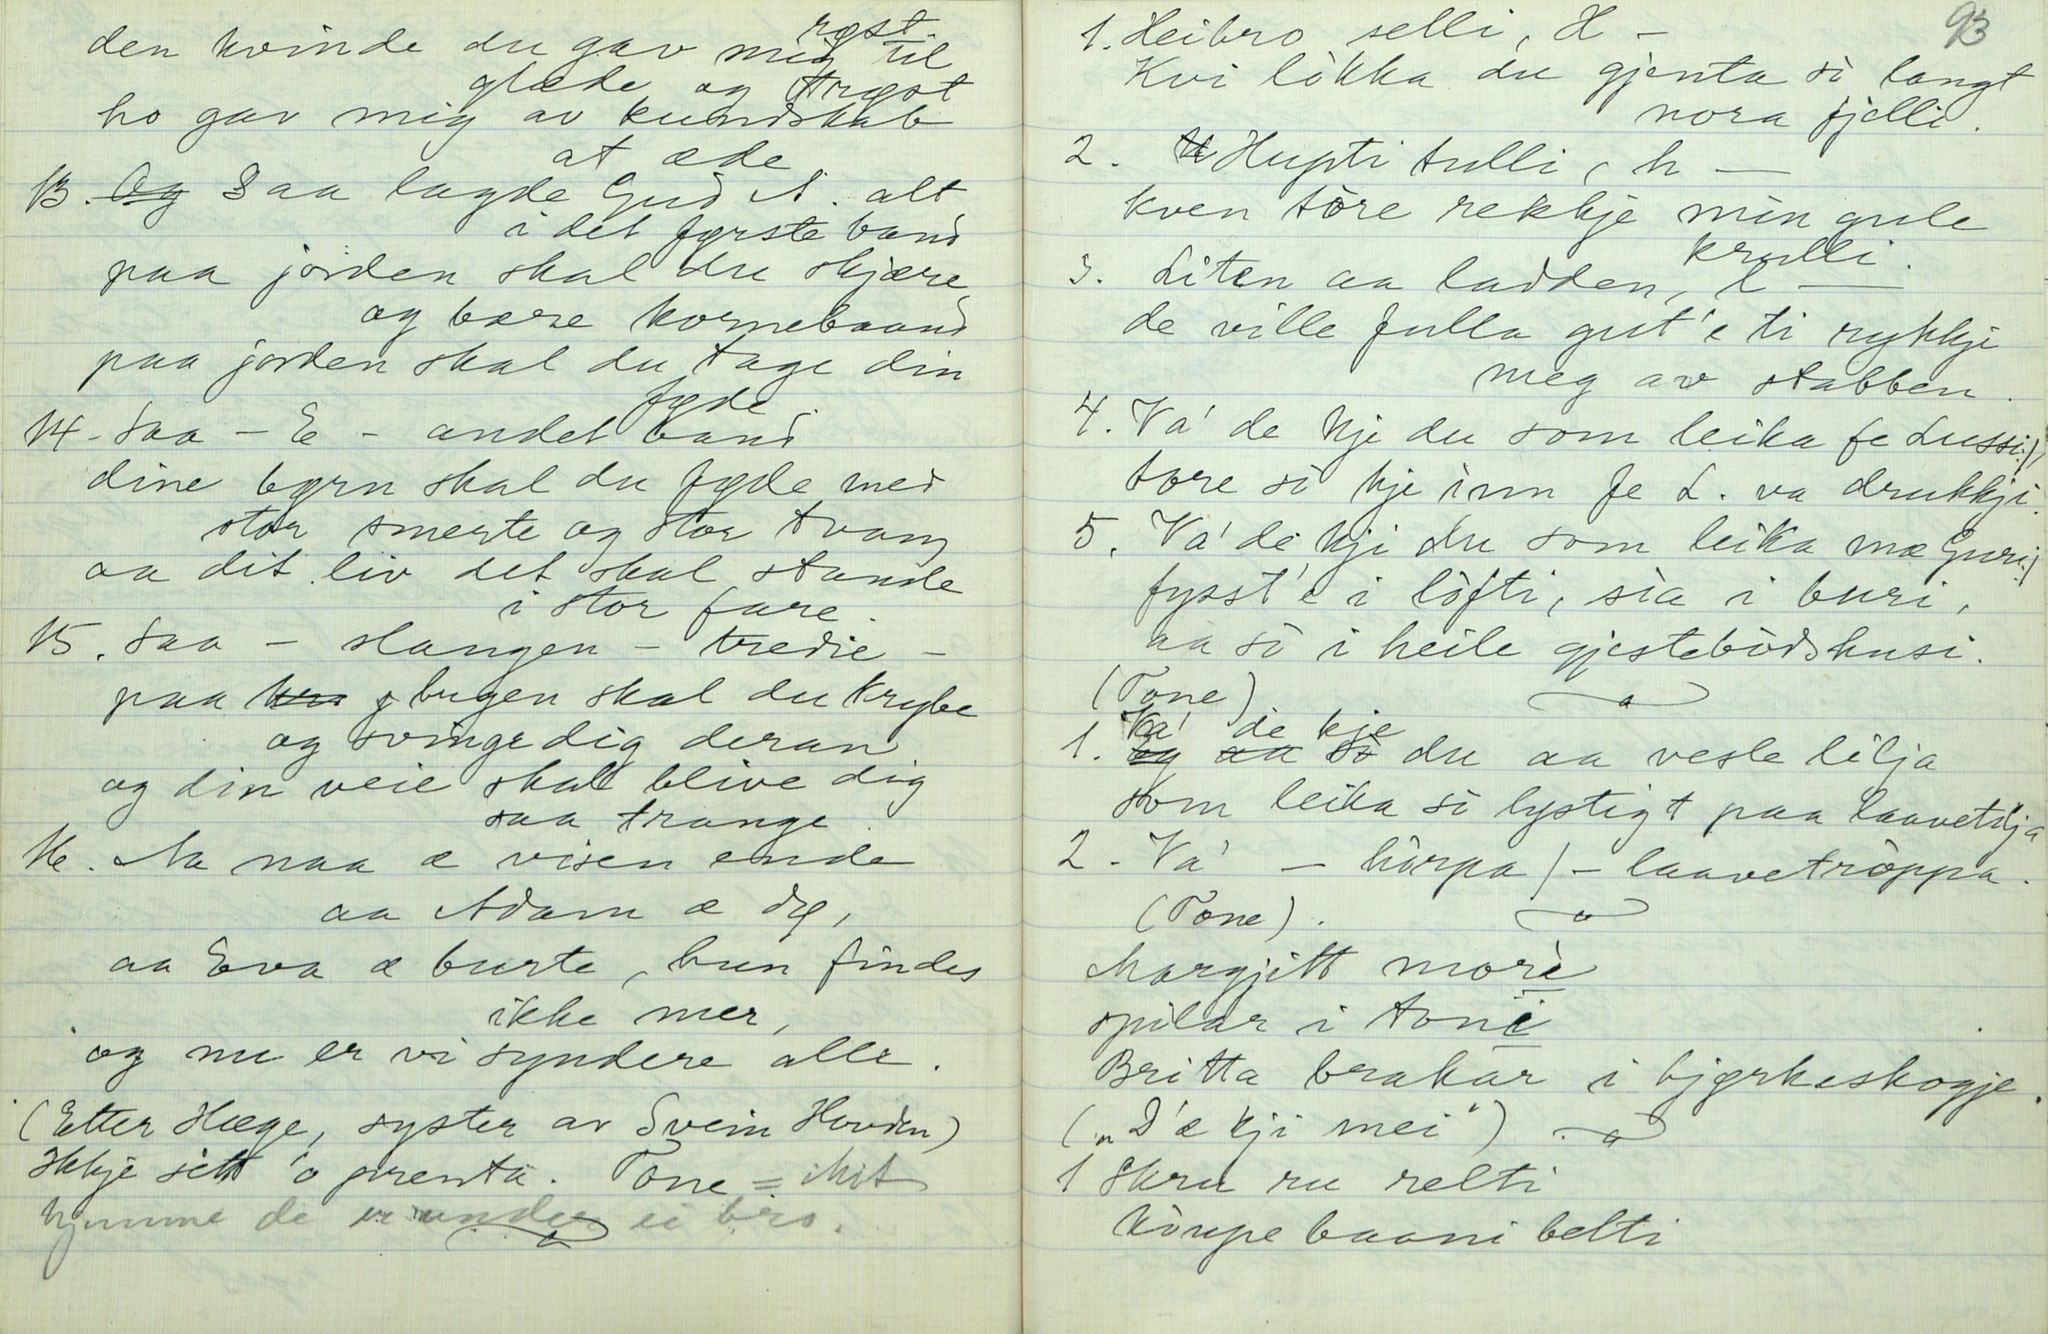 røst.
den kvinde du gav mig til
glæde og trøst
ho gav mig av kundskab
at æde
13. Og Saa lagde Gud A. alt
i det fyrste band
paa jorden skal du skjære
og bære kornebaand
paa jorden skal du tage din
føde.
14. Saa – E – andet band
dine børn skal du føde med
stor smerte og stor tvang
aa dit liv det skal stande
i stor fare.
15. Saa – slangen – tredie –
paa bugen skal du krybe
og svinge dig deran
og din veie skal blive dig
saa trange.
16. Aa naa æ visen ende
aa Adam æ dø,
aa Eva æ burte, hun findes
ikke mer,
og nu er vi syndere alle.
(Etter Hæge, syster av Svein Hovden)
Ikkje sett 'o prenta. Tone =
hjemme de er under ei bro.
93
1. Heibro selli, H –
Kvi lòkka du gjenta sò langt
nora fjelli.
2. Hupti tulli, h —
kven tòre rekkje min gule
krulli.
3. Liten aa ladden, L —
de ville fulla gut'e ti rykkje
meg av stabben.
4. Va' de kje du som leika fe Lussi:/,
tore sò kje inn fe L. va drukkji.
5. Va' de kji du som leika mæ Guri:/
fysst'e i lòfti, sia i buri,
aa sò i heile gjestebòdshusi.
(Tone)
Va' de kje
1. og aa sò du aa vesle lilja
som leika sò lystigt paa laavetilja
2. Va' – hòrpa / – laavetròppa.
(Tone).
Margjitt morè
spilar i tonè
Britta brakar i bjørkeskogje.
(„D'æ kji mei")
1 Skru ru relti
Kòupe baani belti